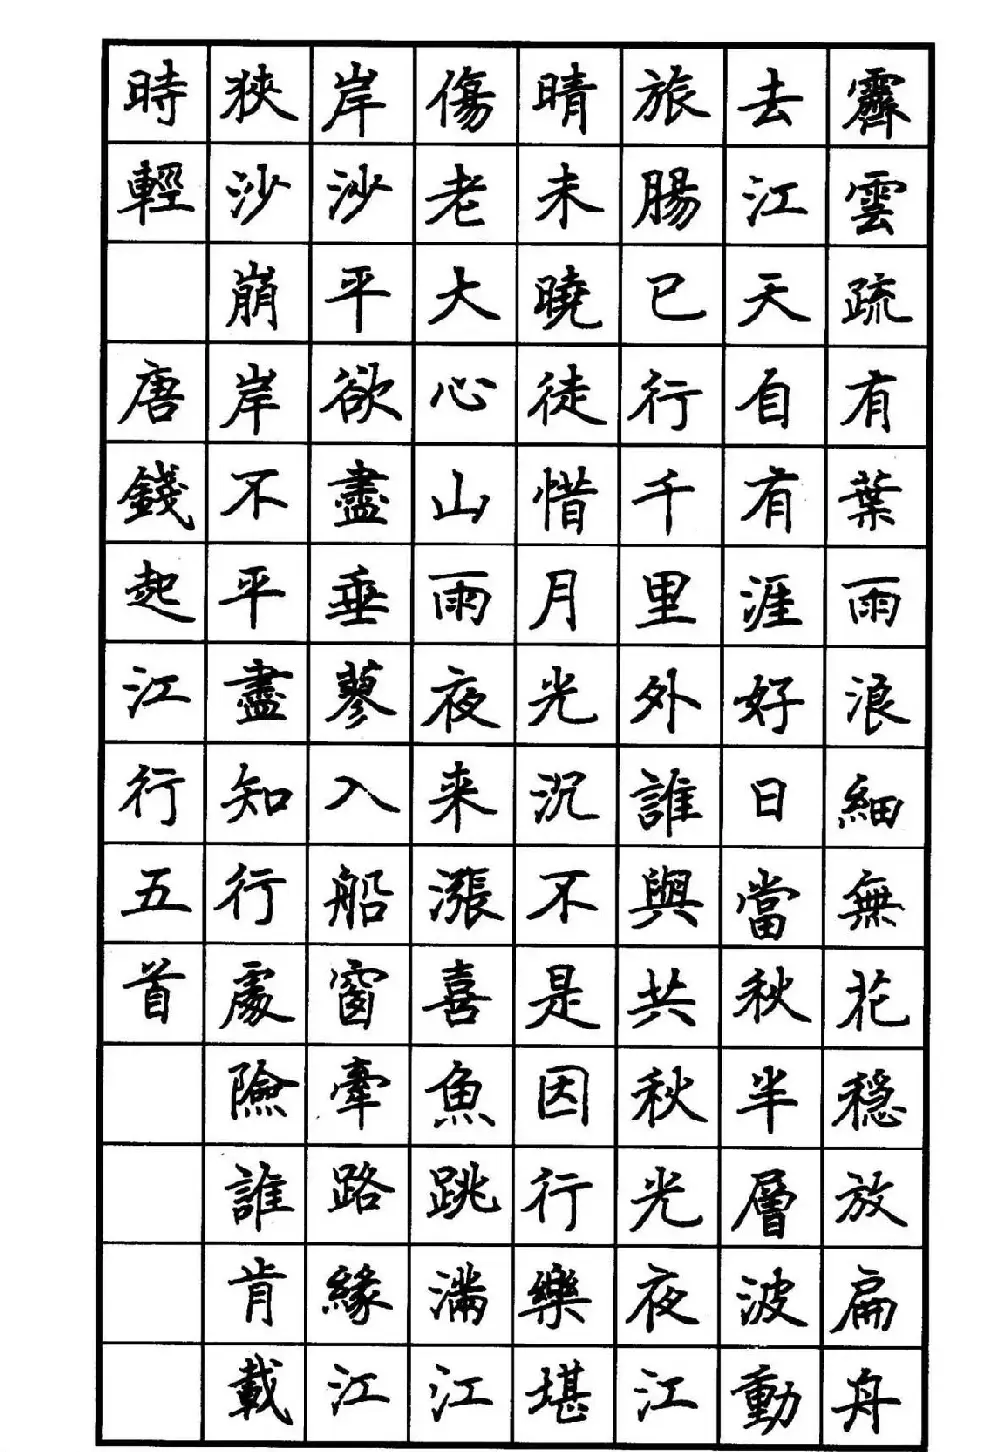 霽雲疏有葉雨浪細無花穩放扁舟
去江天自有涯好日當秋半層波動
旅腸已行千里外誰與共秋光夜江
晴未曉徒惜月光沉不是因行樂堪
傷老大心山雨夜来漲喜魚跳滿江
岸沙平欲盡垂蓼入船窗牽路緣江
狹沙崩岸不平盡知行處險誰肯載
時輕　唐錢起江行五首